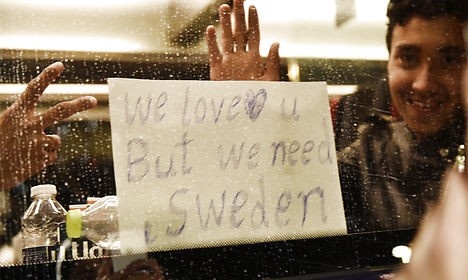 We love♡ u
But we need
Sweden